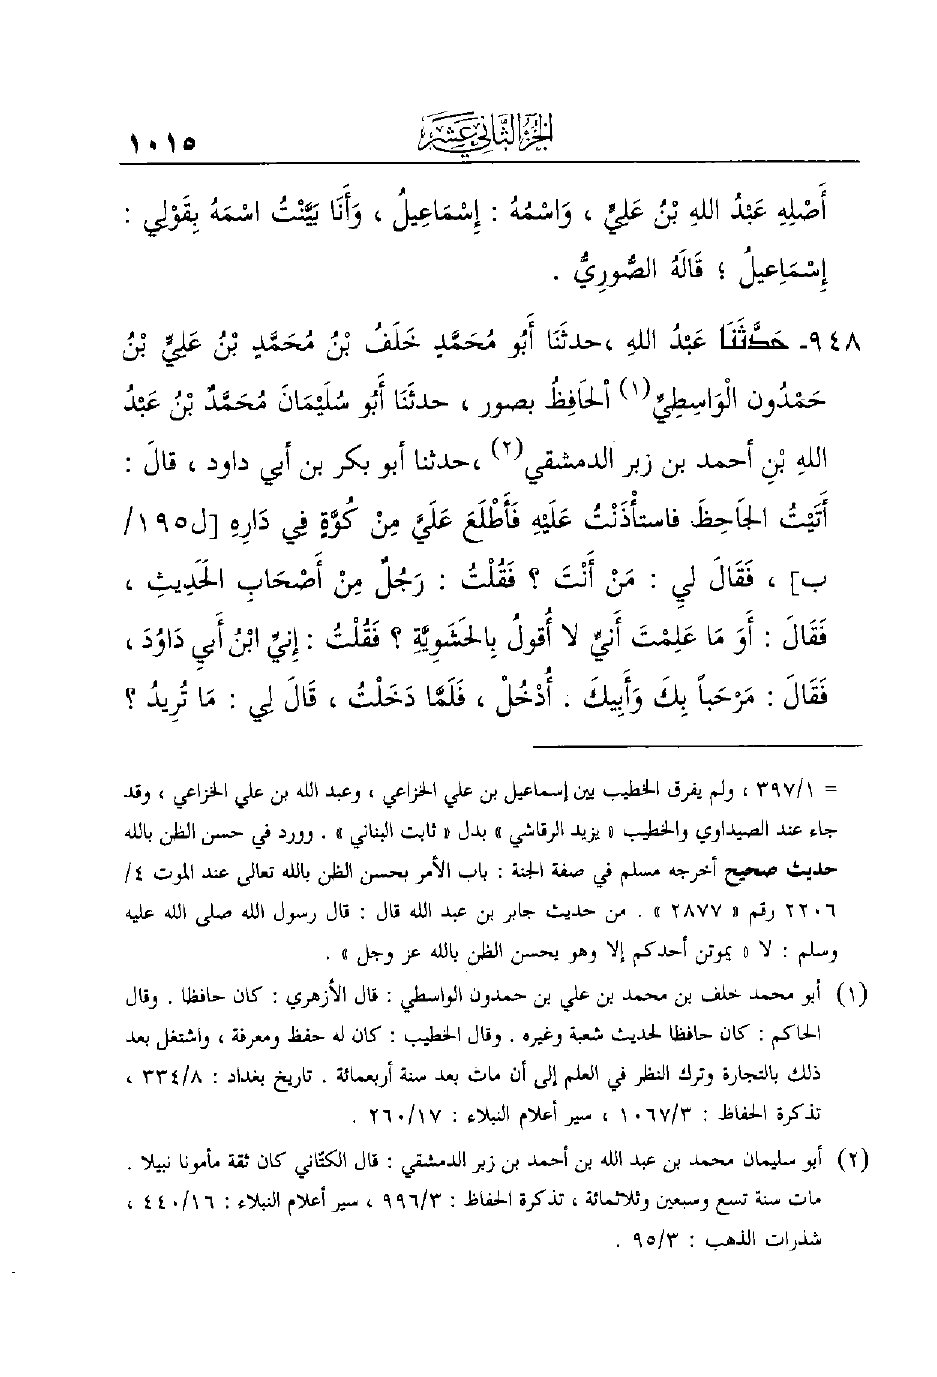 الجزء الثاني عشر ١٠١٥
أَصْلِهِ عَبْدُ اللهِ بْنُ عَلِيٍّ ، وَاسْمُهُ : إِسْمَاعِيلُ ، وَأَنَا بَيَّنْتُ اسْمَهُ بِقَوْلِي :
إِسْمَاعِيلُ ؛ قَالَهُ الصُّورِيُّ .
٩٤٨- حَدَّثَنَا عَبْدُ اللهِ ،حدثَنَا أَبُو مُحَمَّدٍ خَلَفُ بْنُ مُحَمَّدٍ بْنُ عَلِيٍّ بْنُ
حَمْدُون الْوَاسِطِيُّ(١) الْحَافِظُ بصور ، حدثَنَا أَبُو سُلَيْمَانَ مُحَمَّدٌ بْنُ عَبْدُ
اللهِ بْنِ أحمد بن زبر الدمشقي(٢) ،حدثنا أبو بكر بن أبي داود ، قالَ :
أَتَيْتُ الجَاحِظَ فاستأْذَنْتُ عَلَيْهِ فَأَطْلَعَ عَلَيَّ مِنْ كُوَّةٍ فِي دَارِهِ [ل١٩٥/
ب] ، فَقَالَ لِي : مَنْ أَنْتَ ؟ فَقُلْتُ : رَجُلٌ مِنْ أَصْحَابِ الحَدِيثِ ،
فَقَالَ : أَوَ مَا عَلِمْتَ أَنيِّ لا أَقولُ بِالحَشَوِيَّةِ ؟ فَقُلْتُ : إِنيِّ ابْنُ أَبي دَاوُدَ ،
فَقَالَ : مَرْحَباً بِكَ وَأَبِيكَ . أُدْخُلْ ، فَلَمَّا دَخَلْتُ ، قَالَ لِي : مَا تُرِيدُ ؟
= ٣٩٧/١ ، ولم يفرق الخطيب بين إسماعيل بن علي الخزاعي ، وعبد الله بن علي الخزاعي ، وقد
جاء عند الصيداوي والخطيب « يزيد الرقاشي » بدل « ثابت البناني » . وورد في حسن الظن بالله
حديث صحيح أخرجه مسلم في صفة الجنة : باب الأمر بحسن الظن بالله تعالى عند الموت ٤/
٢٢٠٦ رقم « ٢٨٧٧ » . من حديث جابر بن عبد الله قال : قال رسول الله صلى الله عليه
وسلم : لا « يموتن أحدكم إلا وهو يحسن الظن بالله عز وجل » .
(١) أبو محمد خلف بن محمد بن علي بن حمدون الواسطي : قال الأزهري : كان حافظا . وقال
الحاكم : كان حافظا لحديث شعبة وغيره . وقال الخطيب : كان له حفظ ومعرفة ، واشتغل بعد
ذلك بالتجارة وترك النظر في العلم إلى أن مات بعد سنة أربعمائة . تاريخ بغداد : ٣٣٤/٨ ،
تذكرة الحفاظ : ١٠٦٧/٣ ، سير أعلام النبلاء : ٢٦٠/١٧ .
(٢) أبو سليمان محمد بن عبد الله بن أحمد بن زبر الدمشقي : قال الكتّاني كان ثقة مأمونا نبيلا .
مات سنة تسع وسبعين وثلاثمائة ، تذكرة الحفاظ : ٩٩٦/٣ ، سير أعلام النبلاء : ٤٤٠/١٦ ،
شذرات الذهب : ٩٥/٣ .